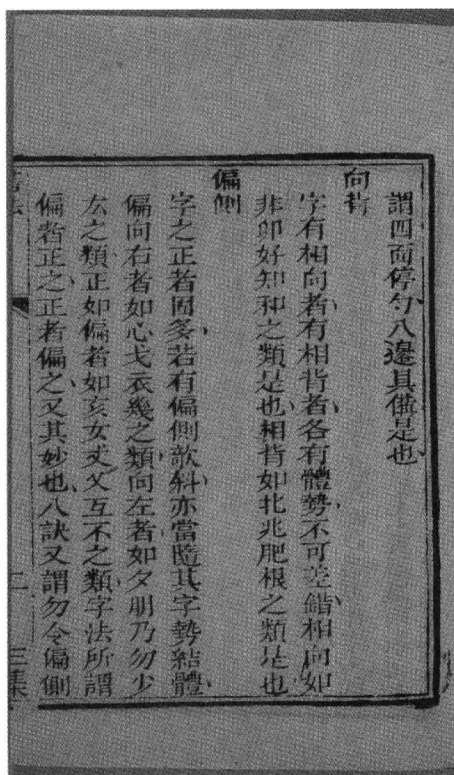 謂四面停勻八邊具備是也
向背
字有相向者有相背者各有體勢不可差錯相向如
非卯好知和之類是也相背如北兆肥根之類是也
偏側
字之正者固多若有偏側欹斜亦當隨其字勢結體
偏向右者如心戈衣幾之類向左者如夕朋乃勿少
厷之類正如偏者如亥女丈乂互不之類字法所謂
偏者正之正者偏之又其妙也八訣又謂勿令偏側
二 三集